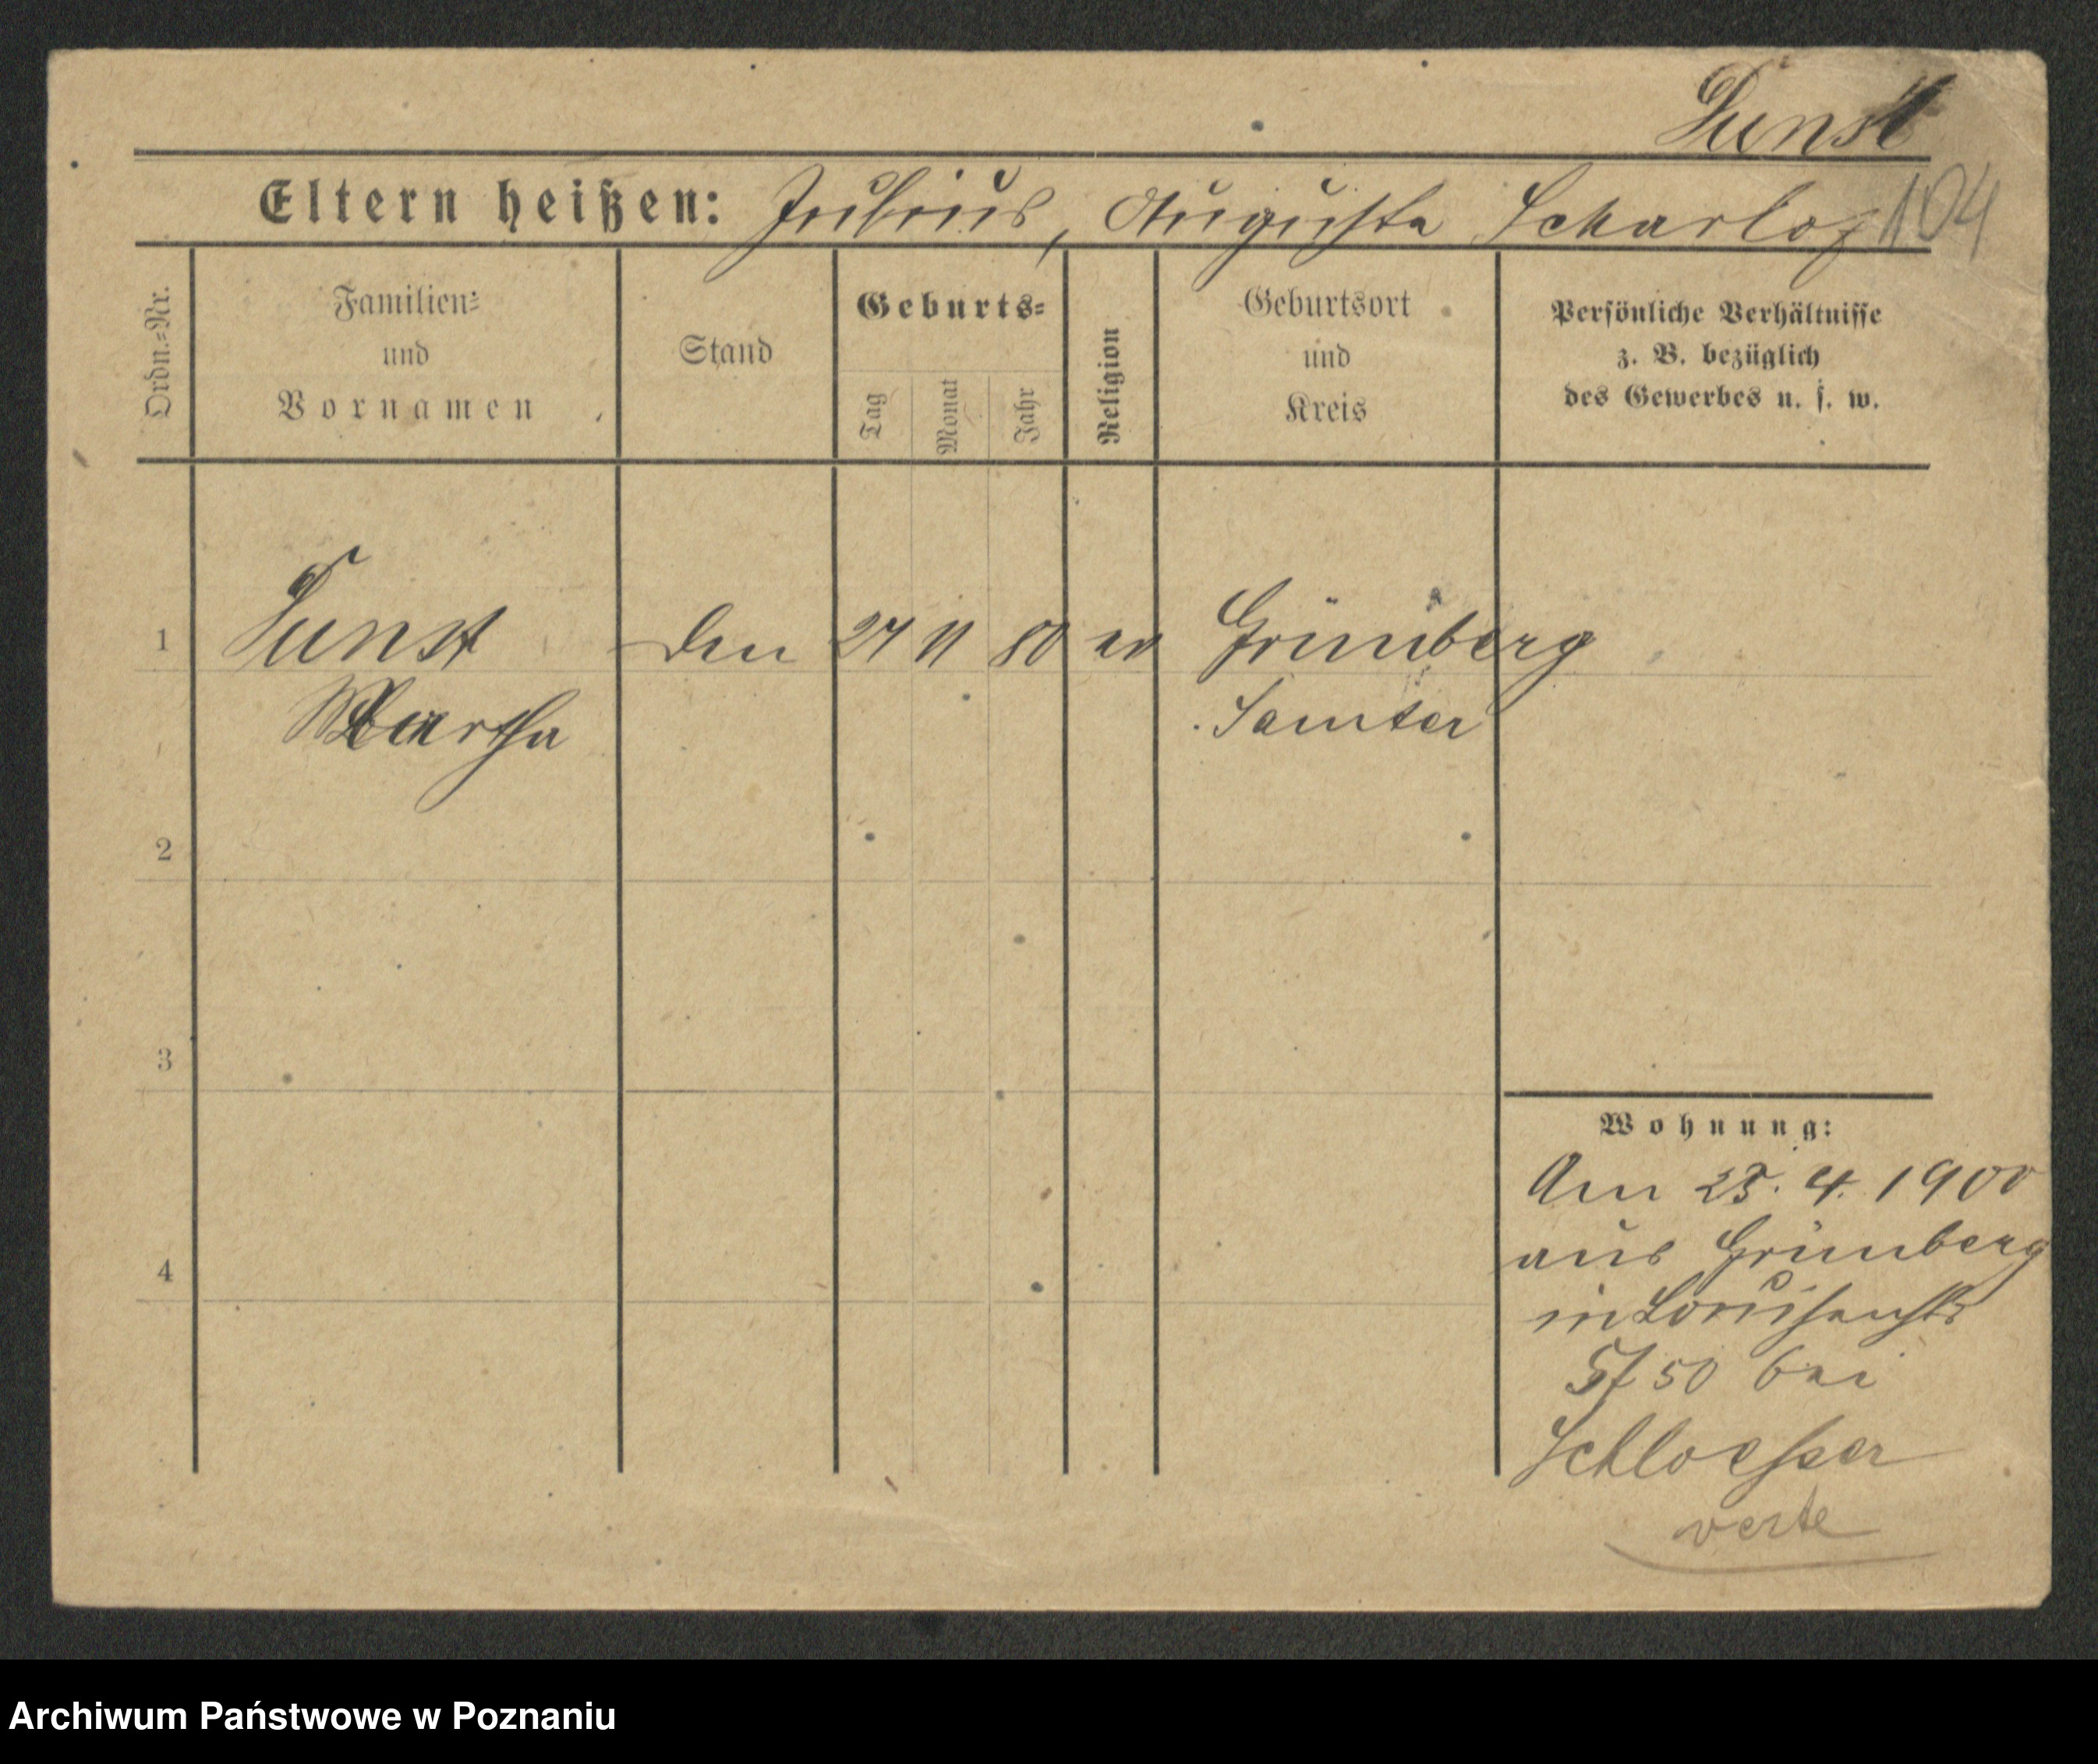 Dunst
Eltern heißen: Julius, Auguste Scharlog
104
Ordn.-Nr.
Familien-
und
Vornamen
Stand
Geburts-
Tag
Monat
Jahr
Religion
Geburtsort
und
Kreis
Persönliche Verhältnisse
z. B. bezüglich
des Gewerbes u. s. w.
1 Dunst 11 80 ev Grünberg
Martha Samter
2
3
4
Wohnung:
Am 4. 1900
aus Grünberg
in Louisenstr
50 bei
Schloesser
verte
Archiwum Państwowe w Poznaniu